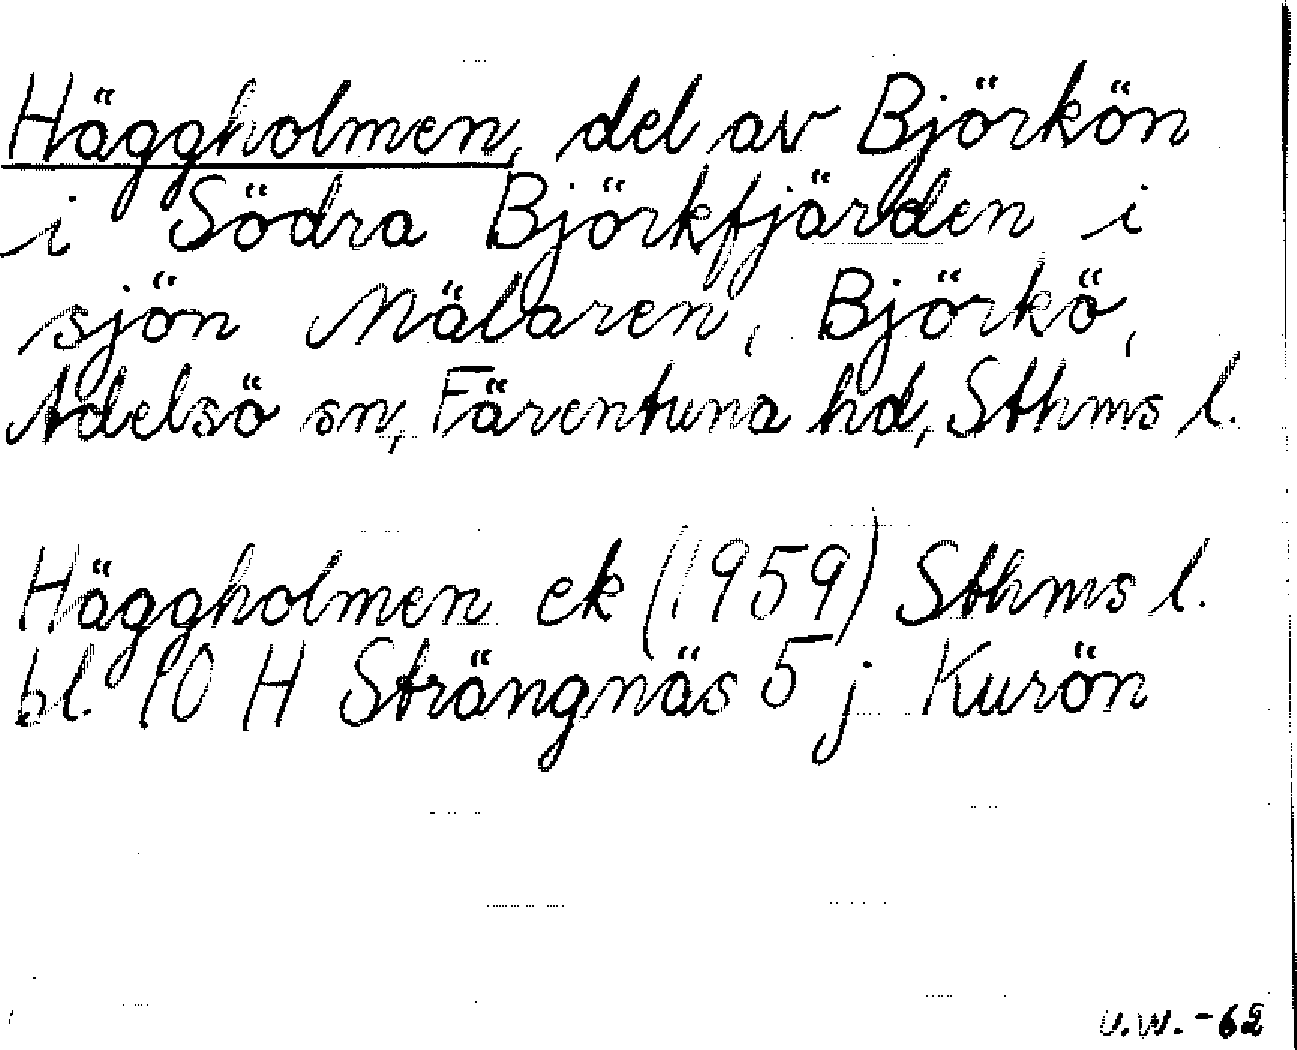 Häggholmen, del av Björkön
i Södra Björkfjärden i
sjön Mälaren, Björkö,
Adelsö sn, Färentuna hd, Sthms l.
Häggholmen ek (1959) Sthms l.
bl. 10 H Strängnäs 5 j Kurön
U.W. -62